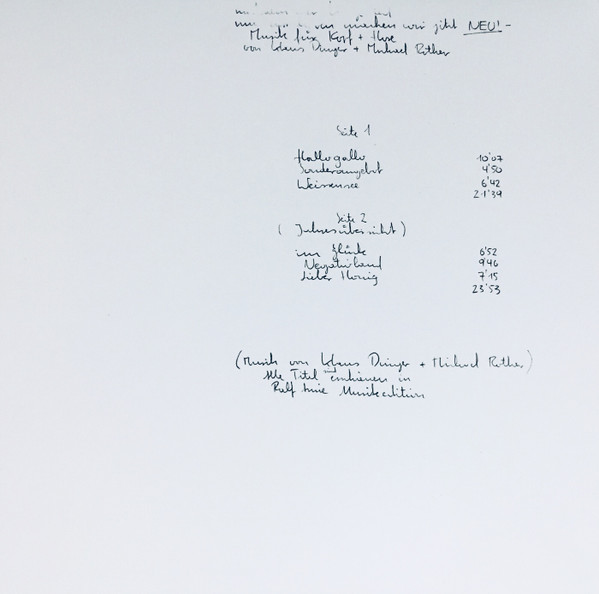 wir jetzt NEU! -
Musik für Kopf + Hose
von Klaus Dinger + Michael Rother
Seite 1
Hallogallo 10'07
Sonderangebot 4'50
Weissensee 6'42
21'39
Seite 2
( Jahresübersicht )
im Glück 6'52
Negativland 9'46
Lieber Honig 7'15
23'53
(Musik von Klaus Dinger + Michael Rother)
Alle Titel erschienen in
Ralf Musikedition